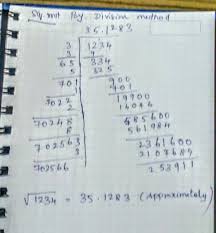 Sq. root by. Division method
35.1283
3 1234
3 9
65 334
5 325
701 900
1 701
7022 19900
2 14044
70248 585600
8 561984
702563 2361600
3 2107689
702566 253911
√1234 = 35.1283 (Approximately)